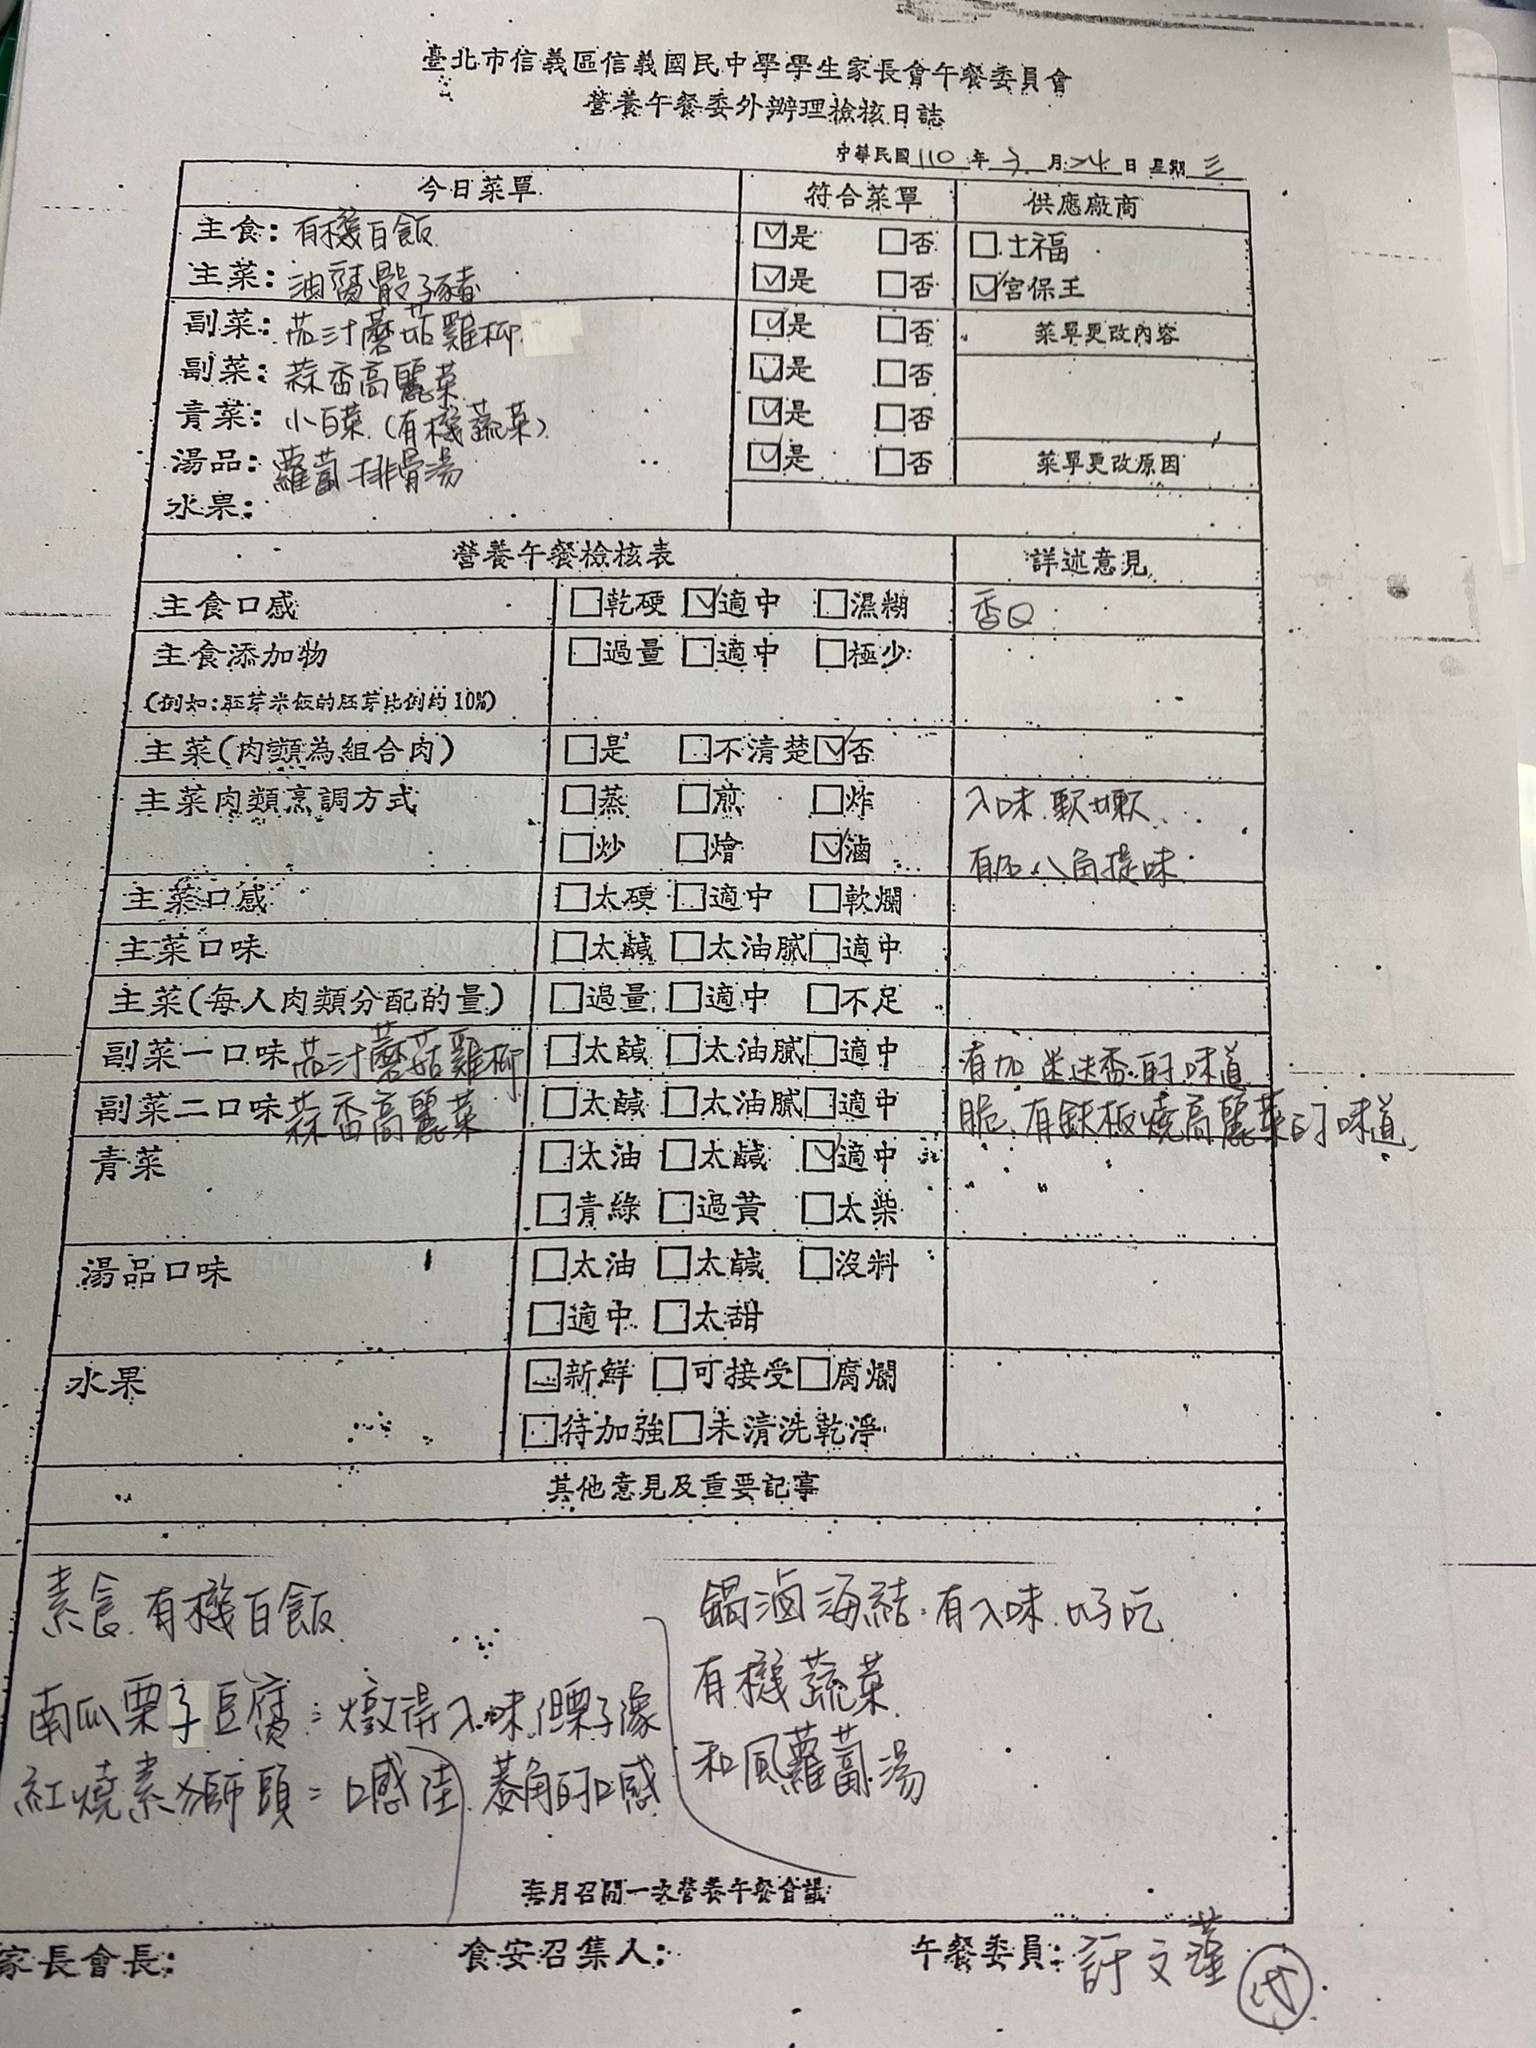 臺北市信義區信義國民中學學生家長會午餐委員會
營養午餐委外辦理檢核日誌
中華民國 110 年 3 月 24 日 星期 三
今日菜單 符合菜單 供應廠商
主食: 有機白飯 ☑是 ☐否 ☐土福
主菜: 油腐骰子豬 ☑是 ☐否 ☑宮保王
副菜: 茄汁蘑菇雞柳 ☑是 ☐否 菜單更改內容
副菜: 蒜香高麗菜 ☑是 ☐否
青菜: 小白菜(有機蔬菜) ☑是 ☐否
湯品: 蘿蔔排骨湯 ☑是 ☐否 菜單更改原因
水果:
營養午餐檢核表 詳述意見
主食口感 ☐乾硬 ☑適中 ☐濕糊 香Q
主食添加物 ☐過量 ☐適中 ☐極少
(例如:胚芽米飯的胚芽比例約10%)
主菜(肉類為組合肉) ☐是 ☐不清楚 ☑否
主菜肉類烹調方式 ☐蒸 ☐煎 ☐炸 入味.軟嫩
☐炒 ☐燴 ☑滷 有加八角提味
主菜口感 ☐太硬 ☐適中 ☐軟爛
主菜口味 ☐太鹹 ☐太油膩 ☐適中
主菜(每人肉類分配的量) ☐過量 ☐適中 ☐不足
副菜一口味 茄汁蘑菇雞柳 ☐太鹹 ☐太油膩 ☐適中 有加迷迭香的味道
副菜二口味 蒜香高麗菜 ☐太鹹 ☐太油膩 ☐適中 脆、有鉄板燒高麗菜的味道
青菜 ☐太油 ☐太鹹 ☑適中
☐青綠 ☐過黃 ☐太柴
湯品口味 ☐太油 ☐太鹹 ☐沒料
☐適中 ☐太甜
水果 ☐新鮮 ☐可接受 ☐腐爛
☐待加強 ☐未清洗乾淨
其他意見及重要記事
素食.有機白飯
南瓜栗子豆腐:燉得入味.但栗子像
紅燒素獅頭=口感佳 菱角的口感
鍋滷海結:有入味.好吃
有機蔬菜
和風蘿蔔湯
每月召開一次營養午餐會議
家長會長: 食安召集人: 午餐委員: 許文瑾 代